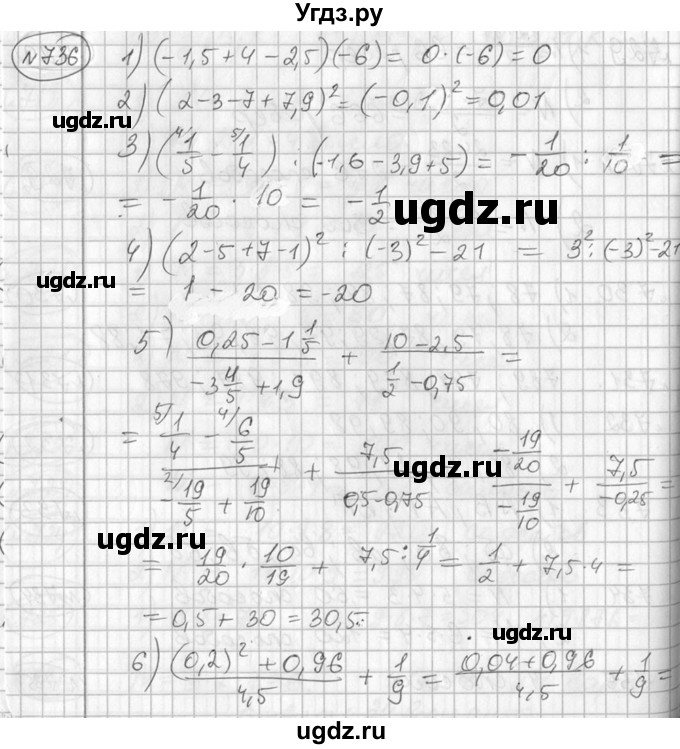 Угдз.ру
№736 1) (-1,5 + 4 - 2,5)(-6) = 0·(-6) = 0
2) (2 - 3 - 7 + 7,9)² = (-0,1)² = 0,01
ugdz.ru ugdz.ru
3) (⁴/1/5 - ⁵/1/4) : (-1,6 - 3,9 + 5) = - 1/20 : 1/10 =
= - 1/20 · 10 = - 1/2
ugdz.ru
4) (2 - 5 + 7 - 1)² : (-3)² - 21 = 3² : (-3)² - 21
ugdz.ru
= 1 - 20 = -20
5) (0,25 - 1 1/5)/(-3 4/5 + 1,9) + (10 - 2,5)/(1/2 - 0,75) =
= (⁵/1/4 - ⁴/6/5)/(-²/19/5 + 19/10) + 7,5/(0,5 - 0,75) (-19/20)/(-19/10) + 7,5/(-0,25) =
ugdz.ru
ugdz.ru
= 19/20 · 10/19 + 7,5 : 1/4 = 1/2 + 7,5·4 =
= 0,5 + 30 = 30,5
ugdz.ru
6) ((0,2)² + 0,96)/4,5 + 1/9 = (0,04 + 0,96)/4,5 + 1/9 =
ugdz.ru
ugdz.ru